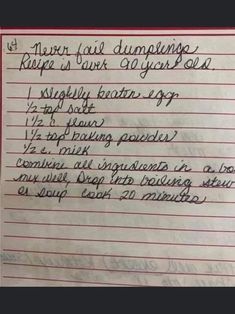 Never fail dumplings
Recipe is over 90 year old.
1 slightly beaten egg
1/2 tsp salt
1 1/2 c. flour
1 1/2 tsp baking powder
1/2 c. milk
combine all ingredients in a bo
mix well, Drop into boiling stew
or soup cook 20 minutes